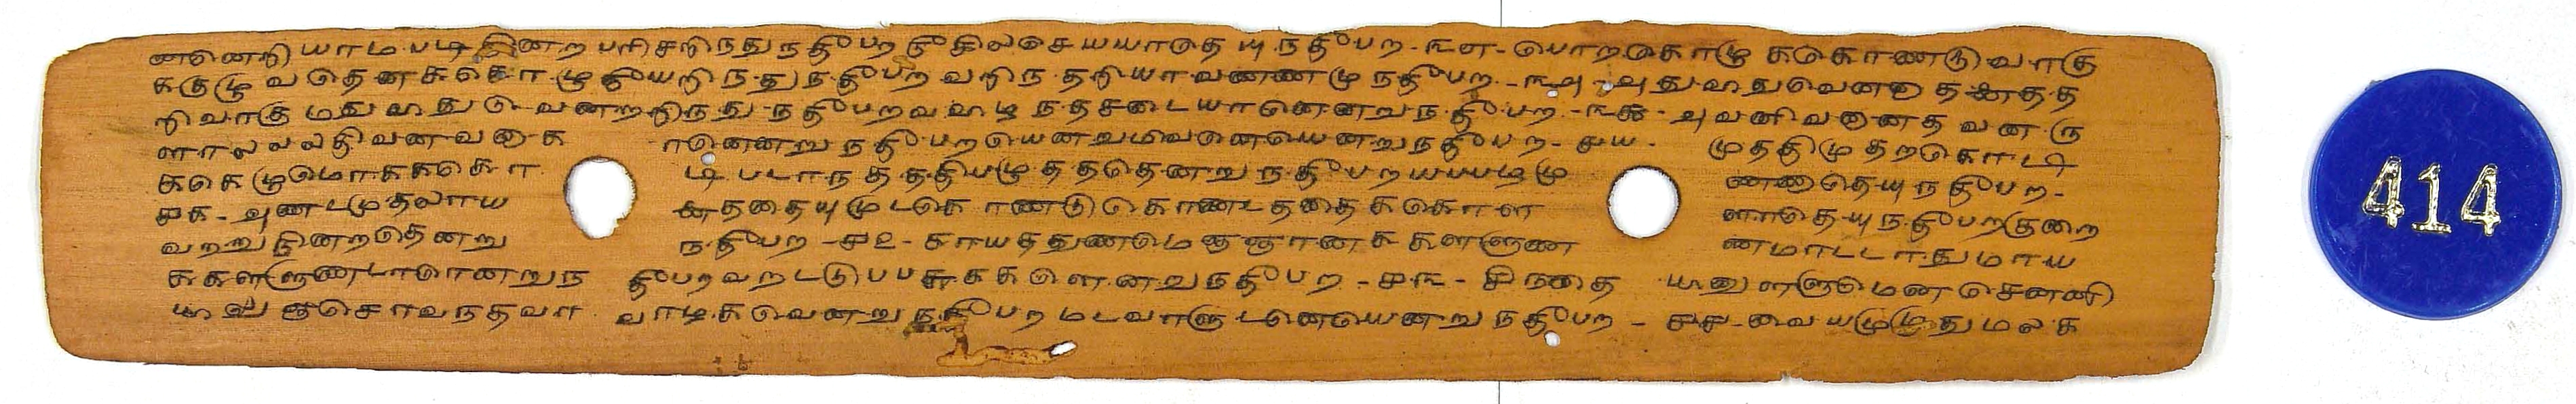 னனெறியாமபடி நினற பரிசறிநதுநதீபற நீதிலசெயயாதெயுநதீபற - ௩௭ - பொறகொழு ககொணடு வரகு
ககுழுவதெனககொழுதியறிநதுநதீபற வறிநதறியாவணணமுநதீபற - ௩௮ - அதுவதுவெனறு தகதத
றிவாகுமதுவதுவெனறறிநது நதீபறவவிழநதசடையானெனறுநதீபற - ௩௯ - அவனிவனானதவனரு
ளாலலலதிவனவனாக ானெனறு நதீபறயெனறுமவெனெயெனறுநதீபற - ௪௰ - முததிமுதறகொடி
ககெழுமொகககொ டி படாநதததியழுதததெனறு நதீபறயபபழமு ணணாதெயுநதீபற -
௪௧ - அணடமுதலாய கததையுமுடகொணடு கொணடததைககொள ளாதெயுநதீபறகுறை
வறறு நினறதெனறு நதீபற - ௪௨ - காயததுணமெஞஞானககளளுண ணமாடடாதுமாய
ககளளுணடாரெனறுந தீபறவறடடுபபசுககளெனறுநதீபற - ௪௩ - சிநதை யினுளளுமெனசெனனி
யிலுஞசொவநதவா வாழிகவெனறு நதீபற மடவாளுடனெயெனறு நதீபற - ௪௪ - வையமுழுதுமலக
414